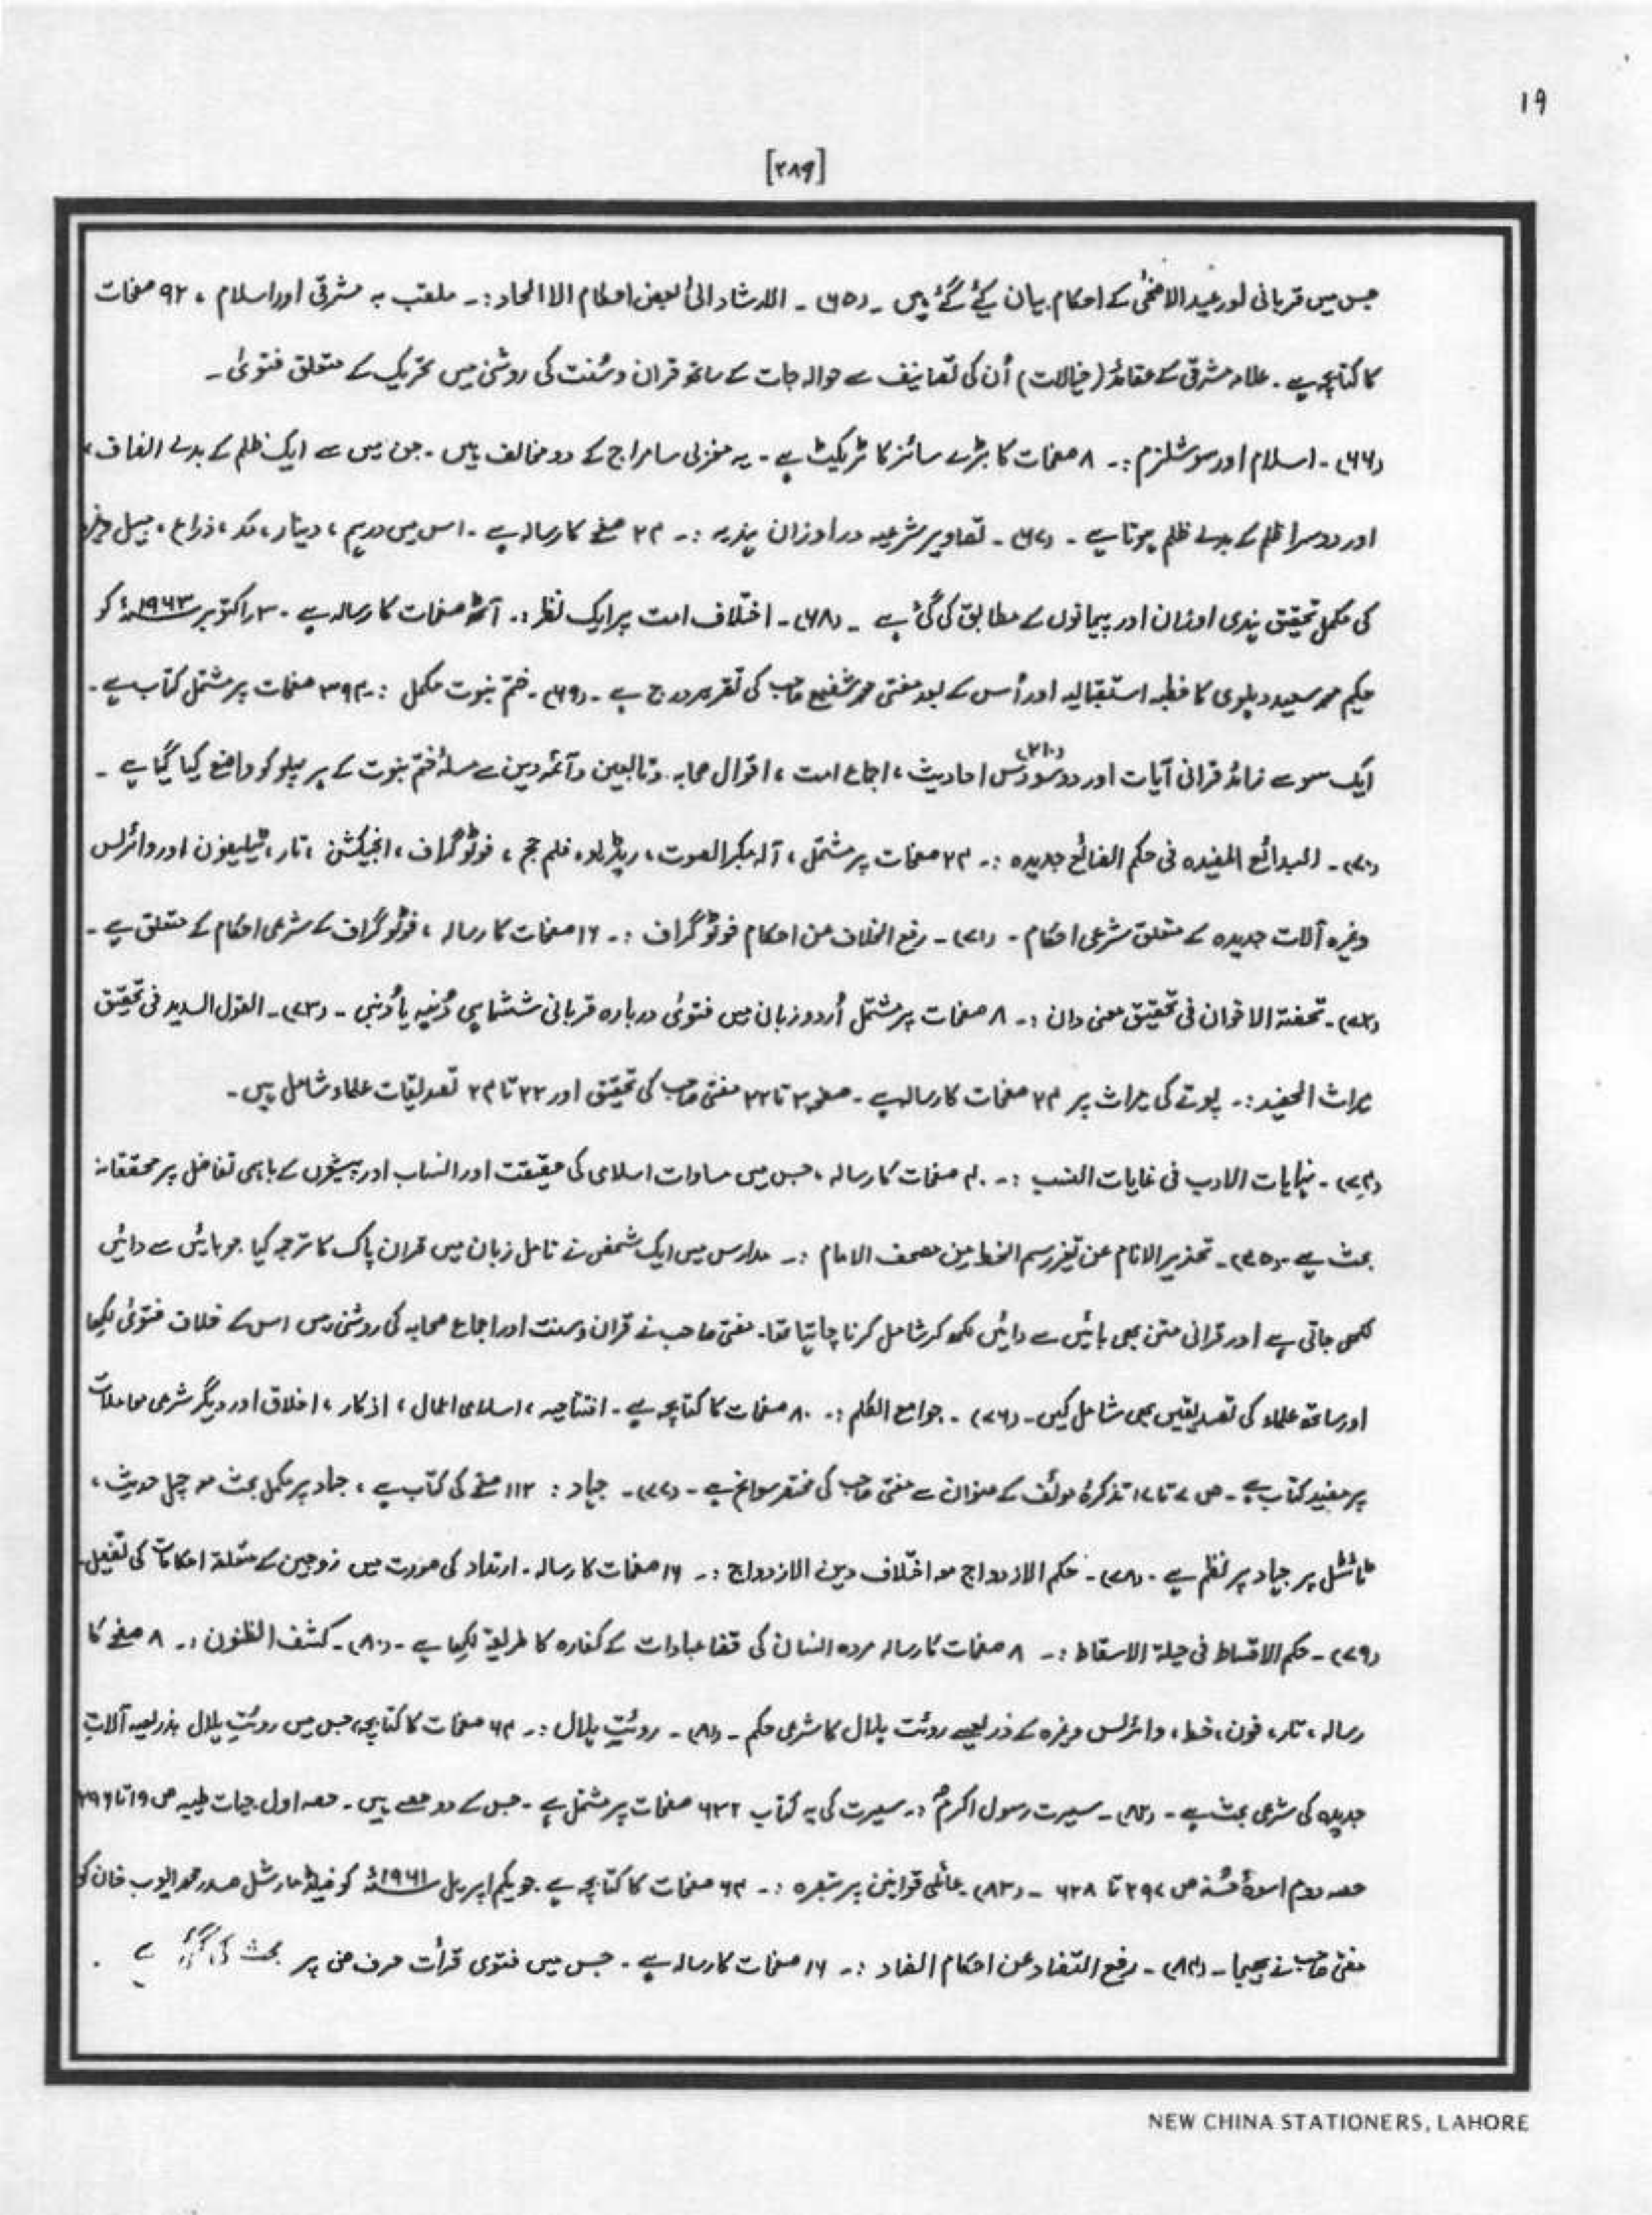 ۱۹
[۲۸۹]
جس میں قربانی اور عید الاضحٰی کے احکام بیان کیۓ گۓ ہیں ۔ (۶۵) ۔ الارشاد الیٰ بعض احکام الا الحاد :۔ ملقب بہ مشرقی اور اسلام ، ۹۲ صفحات
کا کتابچہ ہے ۔ علامہ مشرقی کے عقائد (خیالات) اُن کی تصانیف سے حوالہ جات کے ساتھ قران و سُنت کی روشنی میں تحریک کے متعلق فتویٰ ۔
(۶۶) ۔ اسلام اور سوشلزم :۔ ۸ صفحات کا بڑے سائز کا ٹریکٹ ہے ۔ یہ مغربی سامراج کے دو مخالف ہیں ۔ جن میں سے ایک ظلم کے بدلے انصاف ،
اور دوسرا ظلم کے بدلے ظلم ہوتا ہے ۔ (۶۷) ۔ تصاویر شرعیہ در اوزان ہندیہ :۔ ۲۴ صفحے کا رسالہ ہے ۔ اس میں درہم ، دینار ، مُد ، ذراع ، میل وغیرہ
کی مکمل تحقیق ہندی اوزان اور پیمانوں کے مطابق کی گئی ہے ۔ (۶۸) ۔ اختلاف امت پر ایک نظر :۔ آٹھ صفحات کا رسالہ ہے ۔ ۳ ؍ اکتوبر ۱۹۶۳ء کو
حکیم محمد سعید دہلوی کا خطبہ استقبالیہ اور اُس کے بعد مفتی محمد شفیع صاحب کی تقریر درج ہے ۔ (۶۹) ۔ ختم نبوت مکمل :۔ ۳۹۴ صفحات پر مشتمل کتاب ہے ۔
ایک سو سے زائد قرانی آیات اور دو سو دس (۲۱۰) احادیث ، اجماع امت ، اقوال صحابہ و تابعین و آئمہ دین سے مسلۂ ختم نبوت کے ہر پہلو کو واضع کیا گیا ہے ۔
(۷۰) ۔ البدائع المفیدہ فی حکم الصنائع جدیدہ :۔ ۲۴ صفحات پر مشتمل ، آلہ مکبر الصوت ، ریڈیو ، فلم حج ، فوٹو گراف ، انجیکشن ، تار ، ٹیلیفون اور وائرلس
وغیرہ آلات جدیدہ کے متعلق شرعی احکام ۔ (۷۱) ۔ رفع الخلاف من احکام فوٹو گراف :۔ ۱۶ صفحات کا رسالہ ، فوٹو گراف کے شرعی احکام کے متعلق ہے ۔
(۷۲) ۔ تحفتہ الاخوان فی تحقیق معنی دان :۔ ۸ صفحات پر مشتمل اُردو زبان میں فتویٰ دربارہ قربانی ششماہی دُنبہ یا دُنبی ۔ (۷۳) ۔ القول السدید فی تحقیق
میراث الحفید :۔ پوتے کی میراث پر ۲۴ صفحات کا رسالہ ہے ۔ صفحہ ۲ تا ۲۲ مفتی صاحب کی تحقیق اور ۲۲ تا ۲۴ تصدیقات علماء شامل ہیں ۔
(۷۴) ۔ نہایات الادب فی غایات النسب :۔ ۴۰ صفحات کا رسالہ ، جس میں مساوات اسلامی کی حقیقت اور انساب اور پیشوں کے باہمی تفاضل پر محققانہ
بحث ہے ۔ (۷۵) ۔ تحذیر الانام عن تغیر رسم الخط من مصحف الامام :۔ مدارس میں ایک شخص نے تامل زبان میں قران پاک کا ترجمہ کیا جو بائیں سے دائیں
لکھی جاتی ہے اور قرانی متن بھی بائیں سے دائیں لکھ کر شامل کرنا چاہتا تھا ۔ مفتی صاحب نے قران و سنت اور اجماع صحابہ کی روشنی میں اس کے خلاف فتویٰ لکھا
اور ساتھ علماء کی تصدیقیں بھی شامل کیں ۔ (۷۶) ۔ جوامع الکلم :۔ ۸۰ صفحات کا کتابچہ ہے ۔ افتتاحیہ ، اسلامی اعمال ، اذکار ، اخلاق اور دیگر شرعی معاملات
پر مفید کتاب ہے ۔ ص ۷ تا ۱۷ تذکرۂ مولٔف کے عنوان سے مفتی صاحب کی مختصر سوانح ہے ۔ (۷۷) ۔ جہاد : ۱۱۲ صفحے کی کتاب ہے ، جہاد پر مکمل بحث مع چہل حدیث ،
ٹائٹل پر جہاد پر نظم ہے ۔ (۷۸) ۔ حکم الازدواج مع اختلاف دین الازدواج :۔ ۱۶ صفحات کا رسالہ ۔ ارتداد کی صورت میں زوجین کے متعلقہ احکامات کی تفصیل ۔
(۷۹) ۔ حکم الاقساط فی حیلۃ الاسقاط :۔ ۸ صفحات کا رسالہ مردہ انسان کی قضا عبادات کے کفارہ کا طریقہ لکھا ہے ۔ (۸۰) ۔ کشف الظنون :۔ ۸ صفحے کا
رسالہ ، تار ، فون ، خط ، وائرلس وغیرہ کے ذریعے روئت ہلال کا شرعی حکم ۔ (۸۱) ۔ روئتِ ہلال :۔ ۶۴ صفحات کا کتابچہ ، جس میں روئتِ ہلال بذریعہ آلات
جدیدہ کی شرعی بحث ہے ۔ (۸۲) ۔ سیرت رسول اکرمؐ :۔ سیرت کی یہ کتاب ۶۳۲ صفحات پر مشتمل ہے ۔ جس کے دو حصے ہیں ۔ حصہ اول حیات طیبہ ص ۱۹ تا ۲۹۶
حصہ دوم اسوۂ حسنہ ص ۲۹۷ تا ۶۲۸ ۔ (۸۳) ۔ عائلی قوانین پر تبصرہ :۔ ۶۴ صفحات کا کتابچہ ہے جو یکم اپریل ۱۹۶۱ء کو فیلڈ مارشل صدر محمد ایوب خان کو
مفتی صاحب نے بھیجا ۔ (۸۴) ۔ رفع التضاد عن احکام الضاد :۔ ۱۶ صفحات کا رسالہ ہے ۔ جس میں فتوی قرأت حرف ض پر بحث کی گئی ہے ۔
NEW CHINA STATIONERS, LAHORE